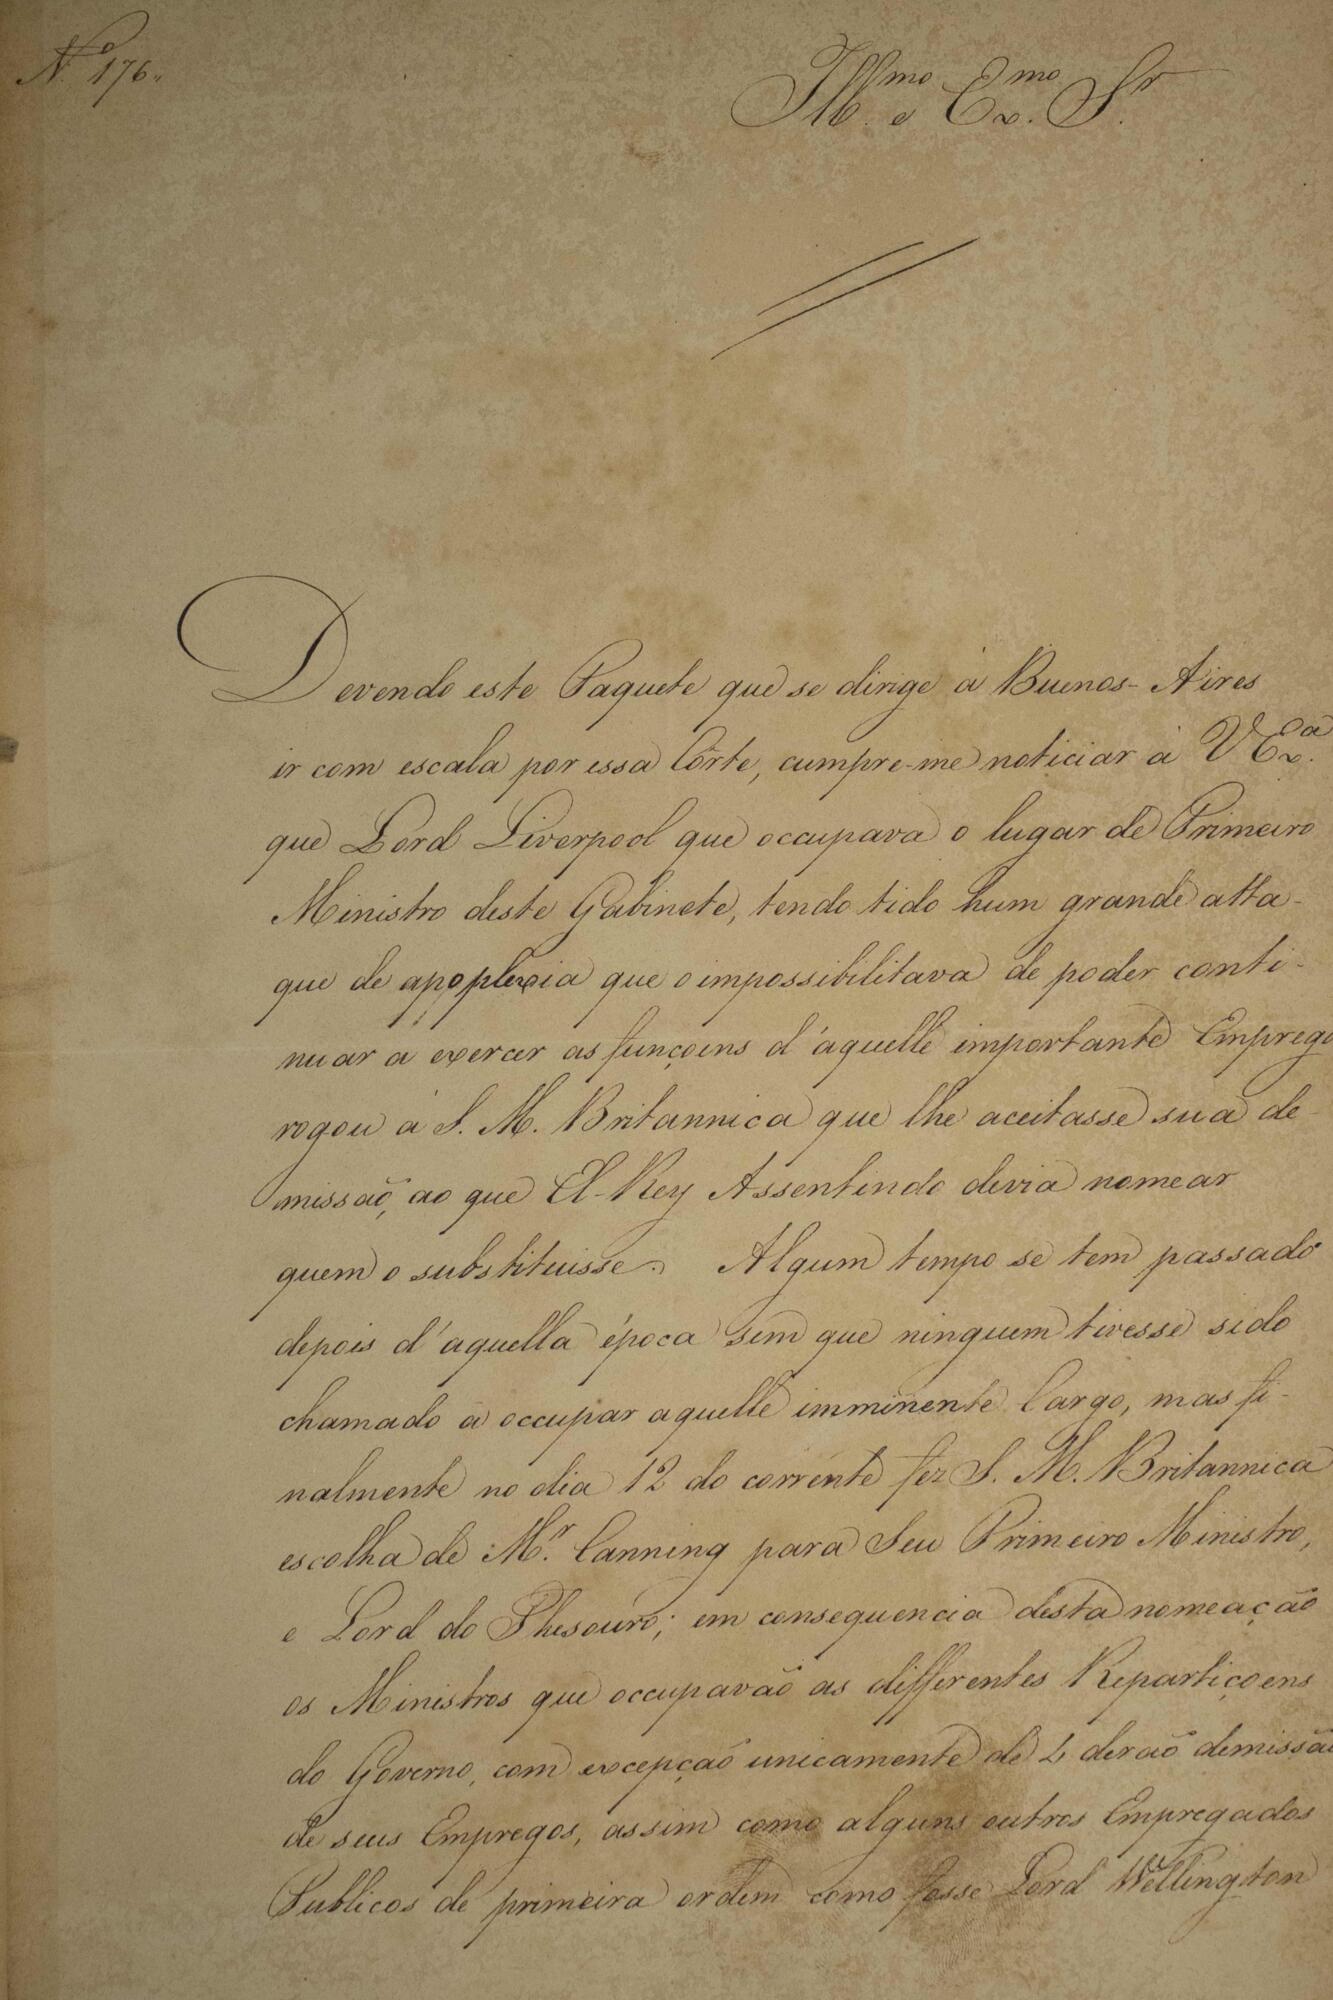 Nº 176.
Ill.mo e Ex.mo Sr.
Devendo este Paquete que se dirige à Buenos-Aires
ir com escala por essa Côrte, cumpre-me noticiar à V Ex.a
que Lord Liverpool que occupava o lugar de Primeiro
Ministro deste Gabinete, tendo tido hum grande atta-
que de apoplexia que o impossibilitava de poder conti-
nuar a exercer as funçoens d'aquelle importante Emprego
rogou à S. M. Britannica que lhe aceitasse sua de-
missão, ao que El-Rey Assentindo devia nomear
quem o substituisse. Algum tempo se tem passado
depois d'aquella época sem que ninguem tivesse sido
chamado a occupar aquelle imminente Cargo, mas fi-
nalmente no dia 12 do corrente fez S. M. Britannica
escolha de Mr. Canning para Seu Primeiro Ministro,
e Lord do Thesouro; em consequencia desta nomeação
os Ministros que occupavão as differentes Repartiçoens
do Governo, com excepção unicamente de 4 derão demissão
de seus Empregos, assim como alguns outros Empregados
Publicos de primeira ordem como fosse Lord Wellington